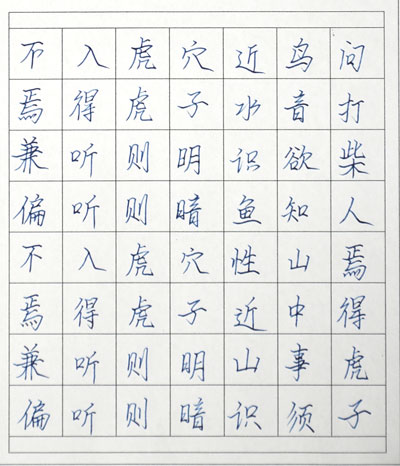 不入虎穴近鸟问
焉得虎子水音打
兼听则明识欲柴
偏听则暗鱼知人
不入虎穴性山焉
焉得虎子近中得
兼听则明山事虎
偏听则暗识须子